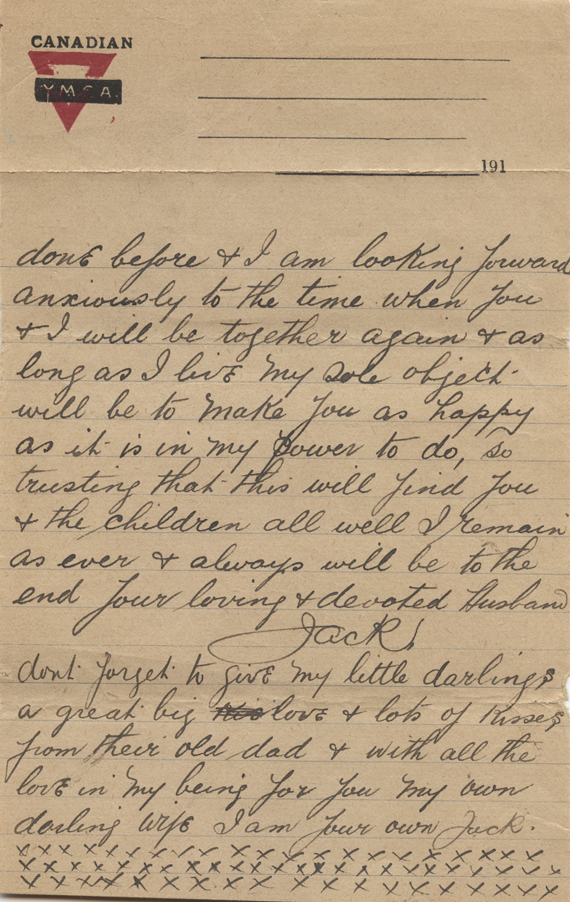 CANADIAN
YMCA
191
done before & I am looking forward
anxiously to the time when you
& I will be together again & as
long as I live my sole object
will be to make you as happy
as it is in my power to do, so
trusting that this will find you
& the children all well I remain
as ever & always will be to the
end your loving & devoted Husband
Jack!
dont forget to give my little darlings
a great big love & lots of kisses
from their old dad & with all the
love in my being for you my own
darling wife I am your own Jack.
x x x x x x x x x x x x x x x x x x x
x x x x x x x x x x x x x x x x x x x
x x x x x x x x x x x x x x x x x x x